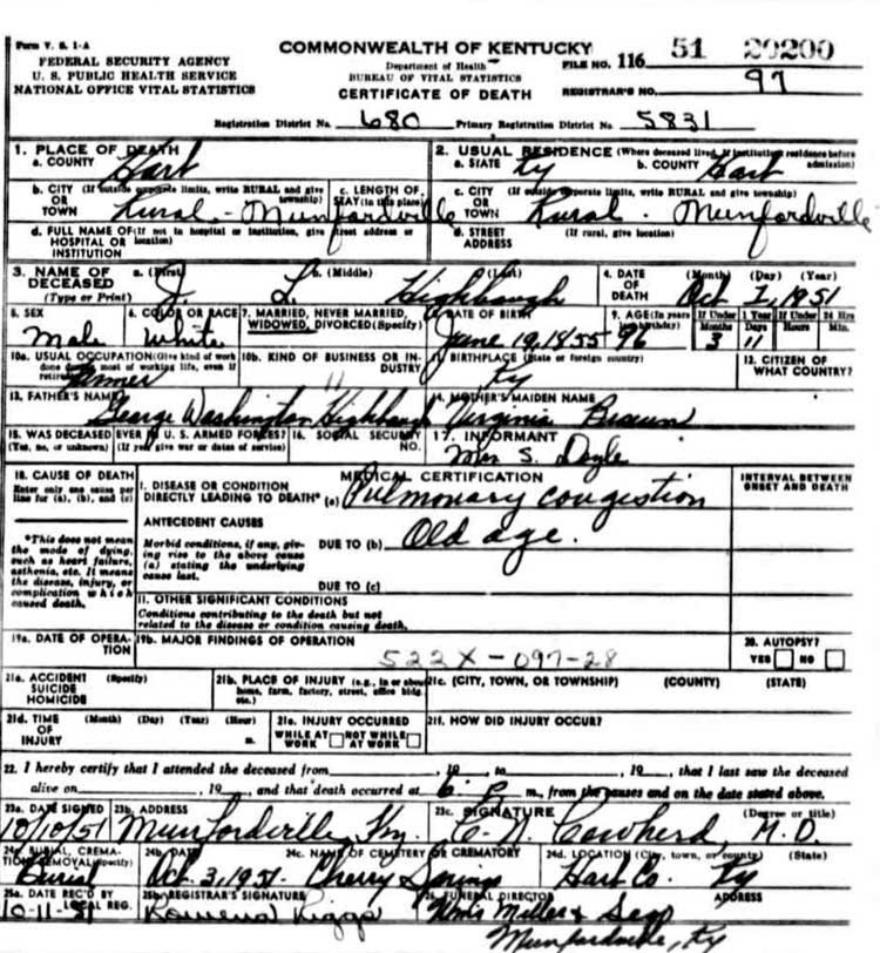 Form V. S. 1-A
FEDERAL SECURITY AGENCY
U. S. PUBLIC HEALTH SERVICE
NATIONAL OFFICE VITAL STATISTICS
COMMONWEALTH OF KENTUCKY
Department of Health
BUREAU OF VITAL STATISTICS
CERTIFICATE OF DEATH
FILE NO. 116 51 20200
REGISTRAR'S NO. 97
Registration District No. 680 Primary Registration District No. 5831
1. PLACE OF DEATH
a. COUNTY Hart
2. USUAL RESIDENCE (Where deceased lived. If institution: residence before admission)
a. STATE Ky b. COUNTY Hart
b. CITY (If outside corporate limits, write RURAL and give township) OR TOWN Rural - Munfordville
c. LENGTH OF STAY (in this place)
c. CITY (If outside corporate limits, write RURAL and give township) OR TOWN Rural - Munfordville
d. FULL NAME OF (If not in hospital or institution, give street address or location) HOSPITAL OR INSTITUTION
d. STREET ADDRESS (If rural, give location)
3. NAME OF DECEASED (Type or Print) a. (First) J. b. (Middle) L. (Last) Highbaugh
4. DATE OF DEATH (Month) (Day) (Year) Oct 1, 1951
5. SEX Male
6. COLOR OR RACE White
7. MARRIED, NEVER MARRIED, WIDOWED, DIVORCED (Specify)
DATE OF BIRTH June 19, 1855
9. AGE (In years last birthday) 96 If Under 1 Year Months 3 Days 11 If Under 24 Hrs Hours Min.
10a. USUAL OCCUPATION (Give kind of work done during most of working life, even if retired) Farmer
10b. KIND OF BUSINESS OR INDUSTRY "
BIRTHPLACE (State or foreign country) Ky
12. CITIZEN OF WHAT COUNTRY?
13. FATHER'S NAME George Washington Highbaugh
14. MOTHER'S MAIDEN NAME Virginia Brown
15. WAS DECEASED EVER IN U. S. ARMED FORCES? (Yes, no, or unknown) (If yes, give war or dates of service)
16. SOCIAL SECURITY NO.
17. INFORMANT Mrs S. Doyle
18. CAUSE OF DEATH
Enter only one cause per line for (a), (b), and (c)
MEDICAL CERTIFICATION
INTERVAL BETWEEN ONSET AND DEATH
I. DISEASE OR CONDITION DIRECTLY LEADING TO DEATH* (a) Pulmonary congestion
ANTECEDENT CAUSES
Morbid conditions, if any, giving rise to the above cause (a) stating the underlying cause last.
DUE TO (b) Old age.
DUE TO (c)
*This does not mean the mode of dying, such as heart failure, asthenia, etc. It means the disease, injury, or complication which caused death.
II. OTHER SIGNIFICANT CONDITIONS
Conditions contributing to the death but not related to the disease or condition causing death.
19a. DATE OF OPERATION
19b. MAJOR FINDINGS OF OPERATION
522X-097-28
20. AUTOPSY?
YES NO
21a. ACCIDENT SUICIDE HOMICIDE (Specify)
21b. PLACE OF INJURY (e.g., in or about home, farm, factory, street, office bldg. etc.)
21c. (CITY, TOWN, OR TOWNSHIP) (COUNTY) (STATE)
21d. TIME OF INJURY (Month) (Day) (Year) (Hour) m.
21e. INJURY OCCURRED WHILE AT WORK NOT WHILE AT WORK
21f. HOW DID INJURY OCCUR?
22. I hereby certify that I attended the deceased from , 19 to , 19 , that I last saw the deceased
alive on , 19 and that death occurred at 6 P m., from the causes and on the date stated above.
23a. DATE SIGNED 10/10/51
23b. ADDRESS Munfordville, Ky.
23c. SIGNATURE (Degree or title) Cowherd, M.D.
24a. BURIAL, CREMATION, REMOVAL (Specify) Burial
24b. DATE Oct. 3, 1951-
24c. NAME OF CEMETERY OR CREMATORY Cherry Springs
24d. LOCATION (City, town, or county) (State) Hart Co. Ky
25a. DATE REC'D BY LOCAL REG. 10-11-51
25b. REGISTRAR'S SIGNATURE Riggs
FUNERAL DIRECTOR ADDRESS Miller & Sego
Munfordville, Ky